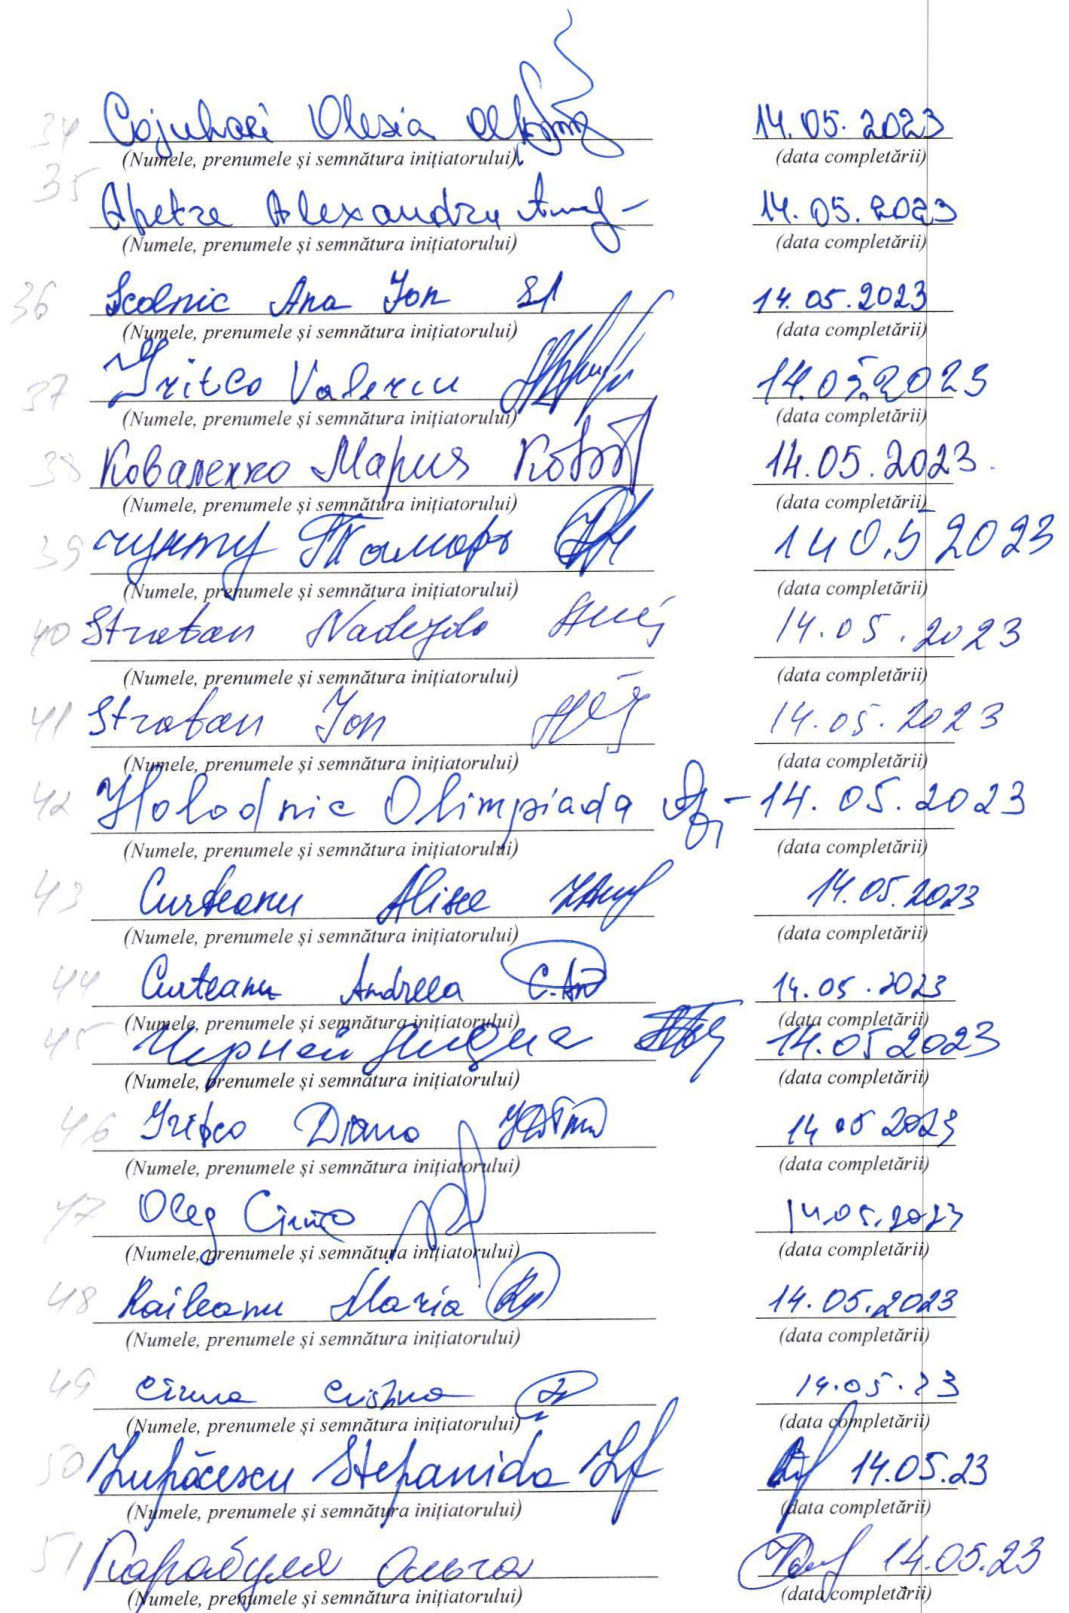 34 Cojuhari Olesia 14.05.2023
(Numele, prenumele și semnătura inițiatorului) (data completării)
35 Apetre Alexandru 14.05.2023
(Numele, prenumele și semnătura inițiatorului) (data completării)
36 Scolnic Ana Ion 14.05.2023
(Numele, prenumele și semnătura inițiatorului) (data completării)
37 Grițco Valeriu 14.05.2023
(Numele, prenumele și semnătura inițiatorului) (data completării)
38 Коваленко Мария 14.05.2023.
(Numele, prenumele și semnătura inițiatorului) (data completării)
39 чунту Тамара 14 05 2023
(Numele, prenumele și semnătura inițiatorului) (data completării)
40 Stratan Nadejda 14.05.2023
(Numele, prenumele și semnătura inițiatorului) (data completării)
41 Stratan Ion 14.05.2023
(Numele, prenumele și semnătura inițiatorului) (data completării)
42 Holodnic Olimpiada 14.05.2023
(Numele, prenumele și semnătura inițiatorului) (data completării)
43 Curteanu Alisa 14.05.2023
(Numele, prenumele și semnătura inițiatorului) (data completării)
44 Curteanu Andreea C.An 14.05.2023
(Numele, prenumele și semnătura inițiatorului) (data completării)
45 Черней 14.05 2023
(Numele, prenumele și semnătura inițiatorului) (data completării)
46 Grițco Diana 14 05 2023
(Numele, prenumele și semnătura inițiatorului) (data completării)
47 Oleg 14.05.2023
(Numele, prenumele și semnătura inițiatorului) (data completării)
48 Raileanu Maria 14.05.2023
(Numele, prenumele și semnătura inițiatorului) (data completării)
49 14.05.23
(Numele, prenumele și semnătura inițiatorului) (data completării)
50 Lupăcescu Stepanida 14.05.23
(Numele, prenumele și semnătura inițiatorului) (data completării)
51 Карабуля Ольга 14.05.23
(Numele, prenumele și semnătura inițiatorului) (data completării)